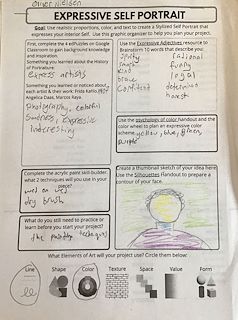 Nielsen
EXPRESSIVE SELF PORTRAIT
Goal: Use realistic proportions, color, and text to create a Stylized Self Portrait that
expresses your interior Self. Use this graphic organizer to help you plan your project.
First, complete the 4 edPuzzles on Google
Classroom to gain background knowledge
and inspiration.
Something you learned about the History
of Portraiture:
express artists
Something you learned or noticed about
each artist & their work: Frida Kahlo,
Angelica Daas, Marcos Raya.
Photography, colorful
Sadness, expressive
interesting
Use the Expressive Adjectives resource to
Brainstorm 10 words that describe you:
rational
funny
kind
loyal
brave
confident
honest
Use the psychology of color handout and
the color wheel to plan an expressive color
scheme yellow, blue, green,
purple
Complete the acrylic paint skill-builder.
what 2 techniques will you use in your
piece?
wet on wet
dry brush
What do you still need to practice
or learn before you start your project?
the painting techniques
Create a thumbnail sketch of your idea here.
Use the Silhouettes Handout to prepare a
contour of your face.
What Elements of Art will your project use? Circle them below:
Line Shape Color Texture Space Value Form